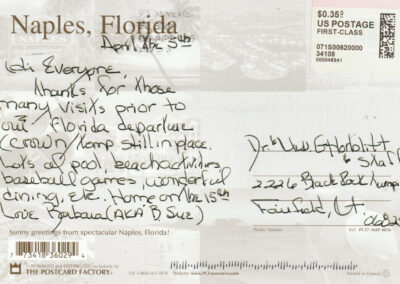 Naples, Florida
April the 5th
Hi Everyone,
thanks for those
many visits prior to
our Florida departure
(crown temp still in place.
Lots of pool, beach activities
baseball games, wonderful
dining, etc. Home on the 15th
Love Barbara (AKA B Sue)
Sunny greetings from spectacular Naples, Florida!
7 73418 36029 4
DISTRIBUTED exclusively by
THE POSTCARD FACTORY
Tel: 1-800-363-7629
Website: www.PCFsouvenirs.com
Printed in Canada
$0.35
US POSTAGE
FIRST-CLASS
071S00820000
34108
000048941
Dr. & Mrs. G
& Staff
2226 Black Rock
Fairfield, Ct.